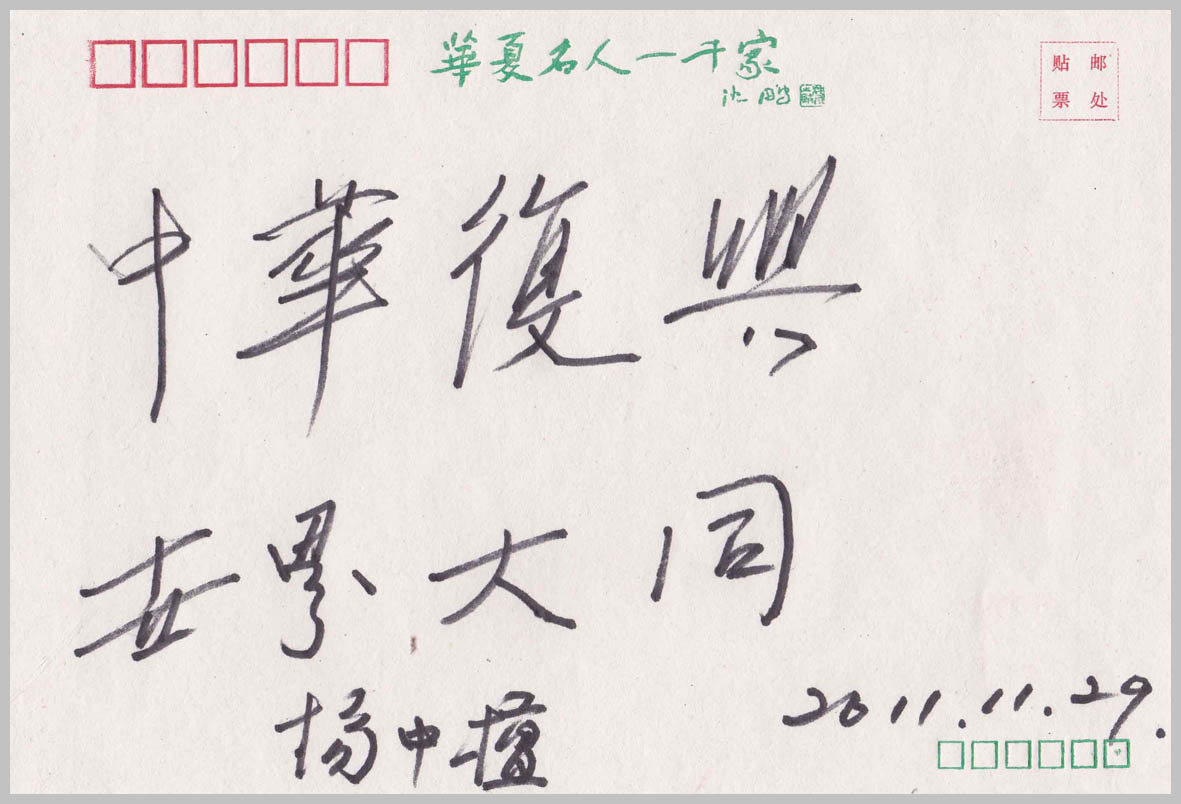 華夏名人一千家
沈鹏
贴邮
票处
中華復興
世界大同
杨中
2011.11.29.